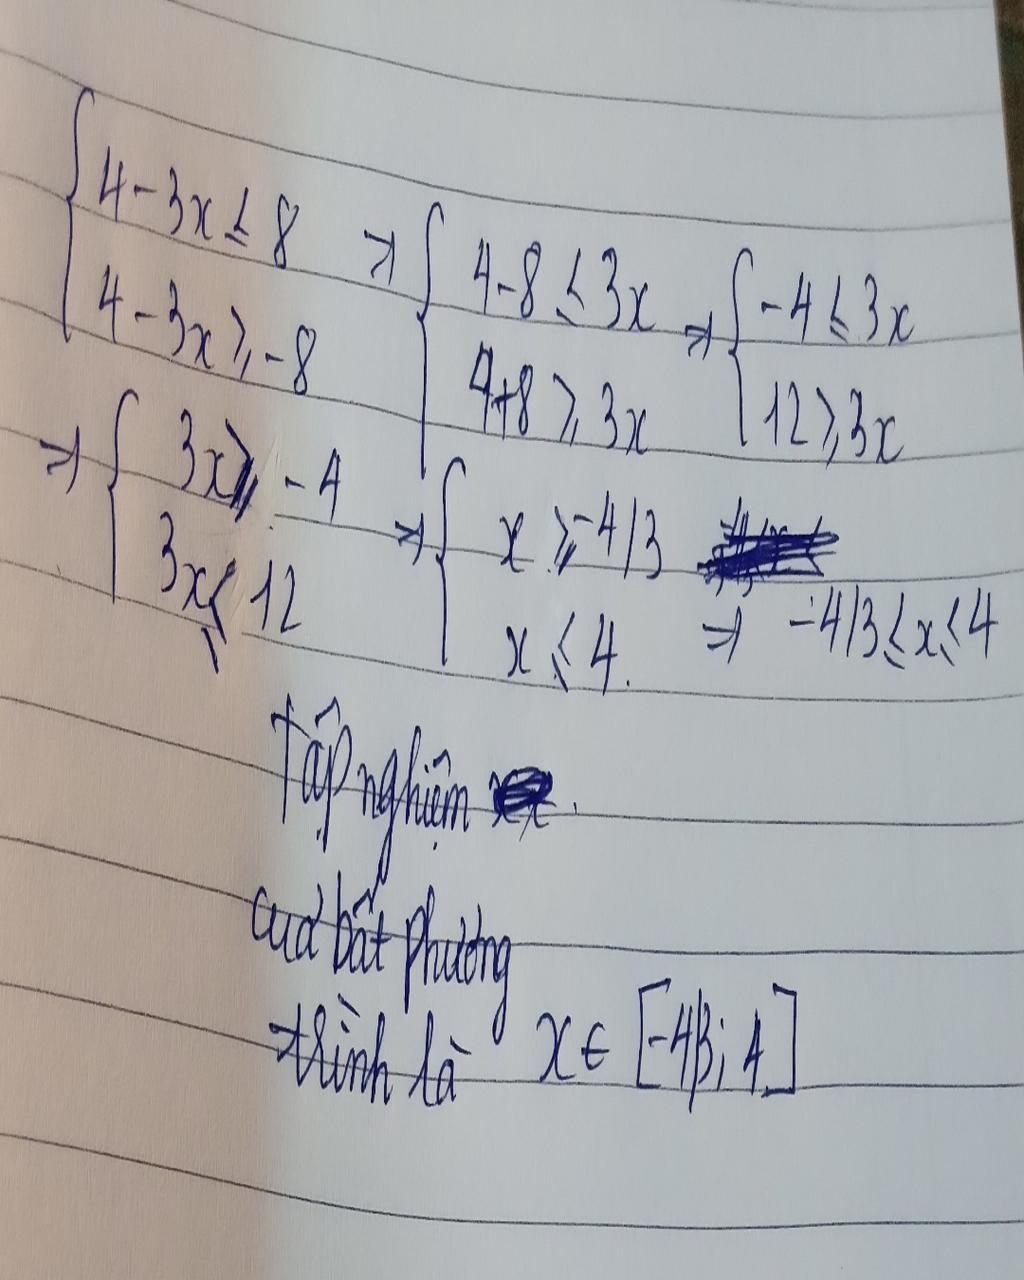 { 4-3x ≤ 8 => { 4-8 ≤ 3x => { -4 ≤ 3x
4-3x ≥ -8 4+8 ≥ 3x 12 ≥ 3x
=> { 3x ≥ -4 => { x ≥ -4/3
3x ≤ 12 x ≤ 4. => -4/3 ≤ x ≤ 4
Tập nghiệm
của bất phương
trình là x ∈ [-4/3; 4]